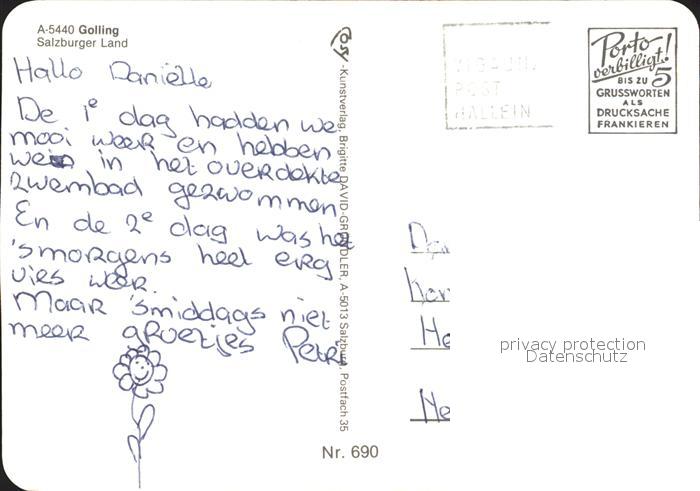 A-5440 Golling
Salzburger Land
Hallo Daniëlle
De 1e dag hadden we
mooi weer en hebben
we in het overdekte
zwembad gezwommen
En de 2e dag was het
'smorgens heel erg
vies weer.
Maar 'smiddags niet
meer groetjes Petri
Cosy-Kunstverlag, Brigitte DAVID-GRÜNDLER, A-5013 Salzburg, Postfach 35
POST
HALLEIN
Porto
verbilligt!
BIS ZU 5
GRUSSWORTEN
ALS
DRUCKSACHE
FRANKIEREN
He
He
privacy protection
Datenschutz
Nr. 690